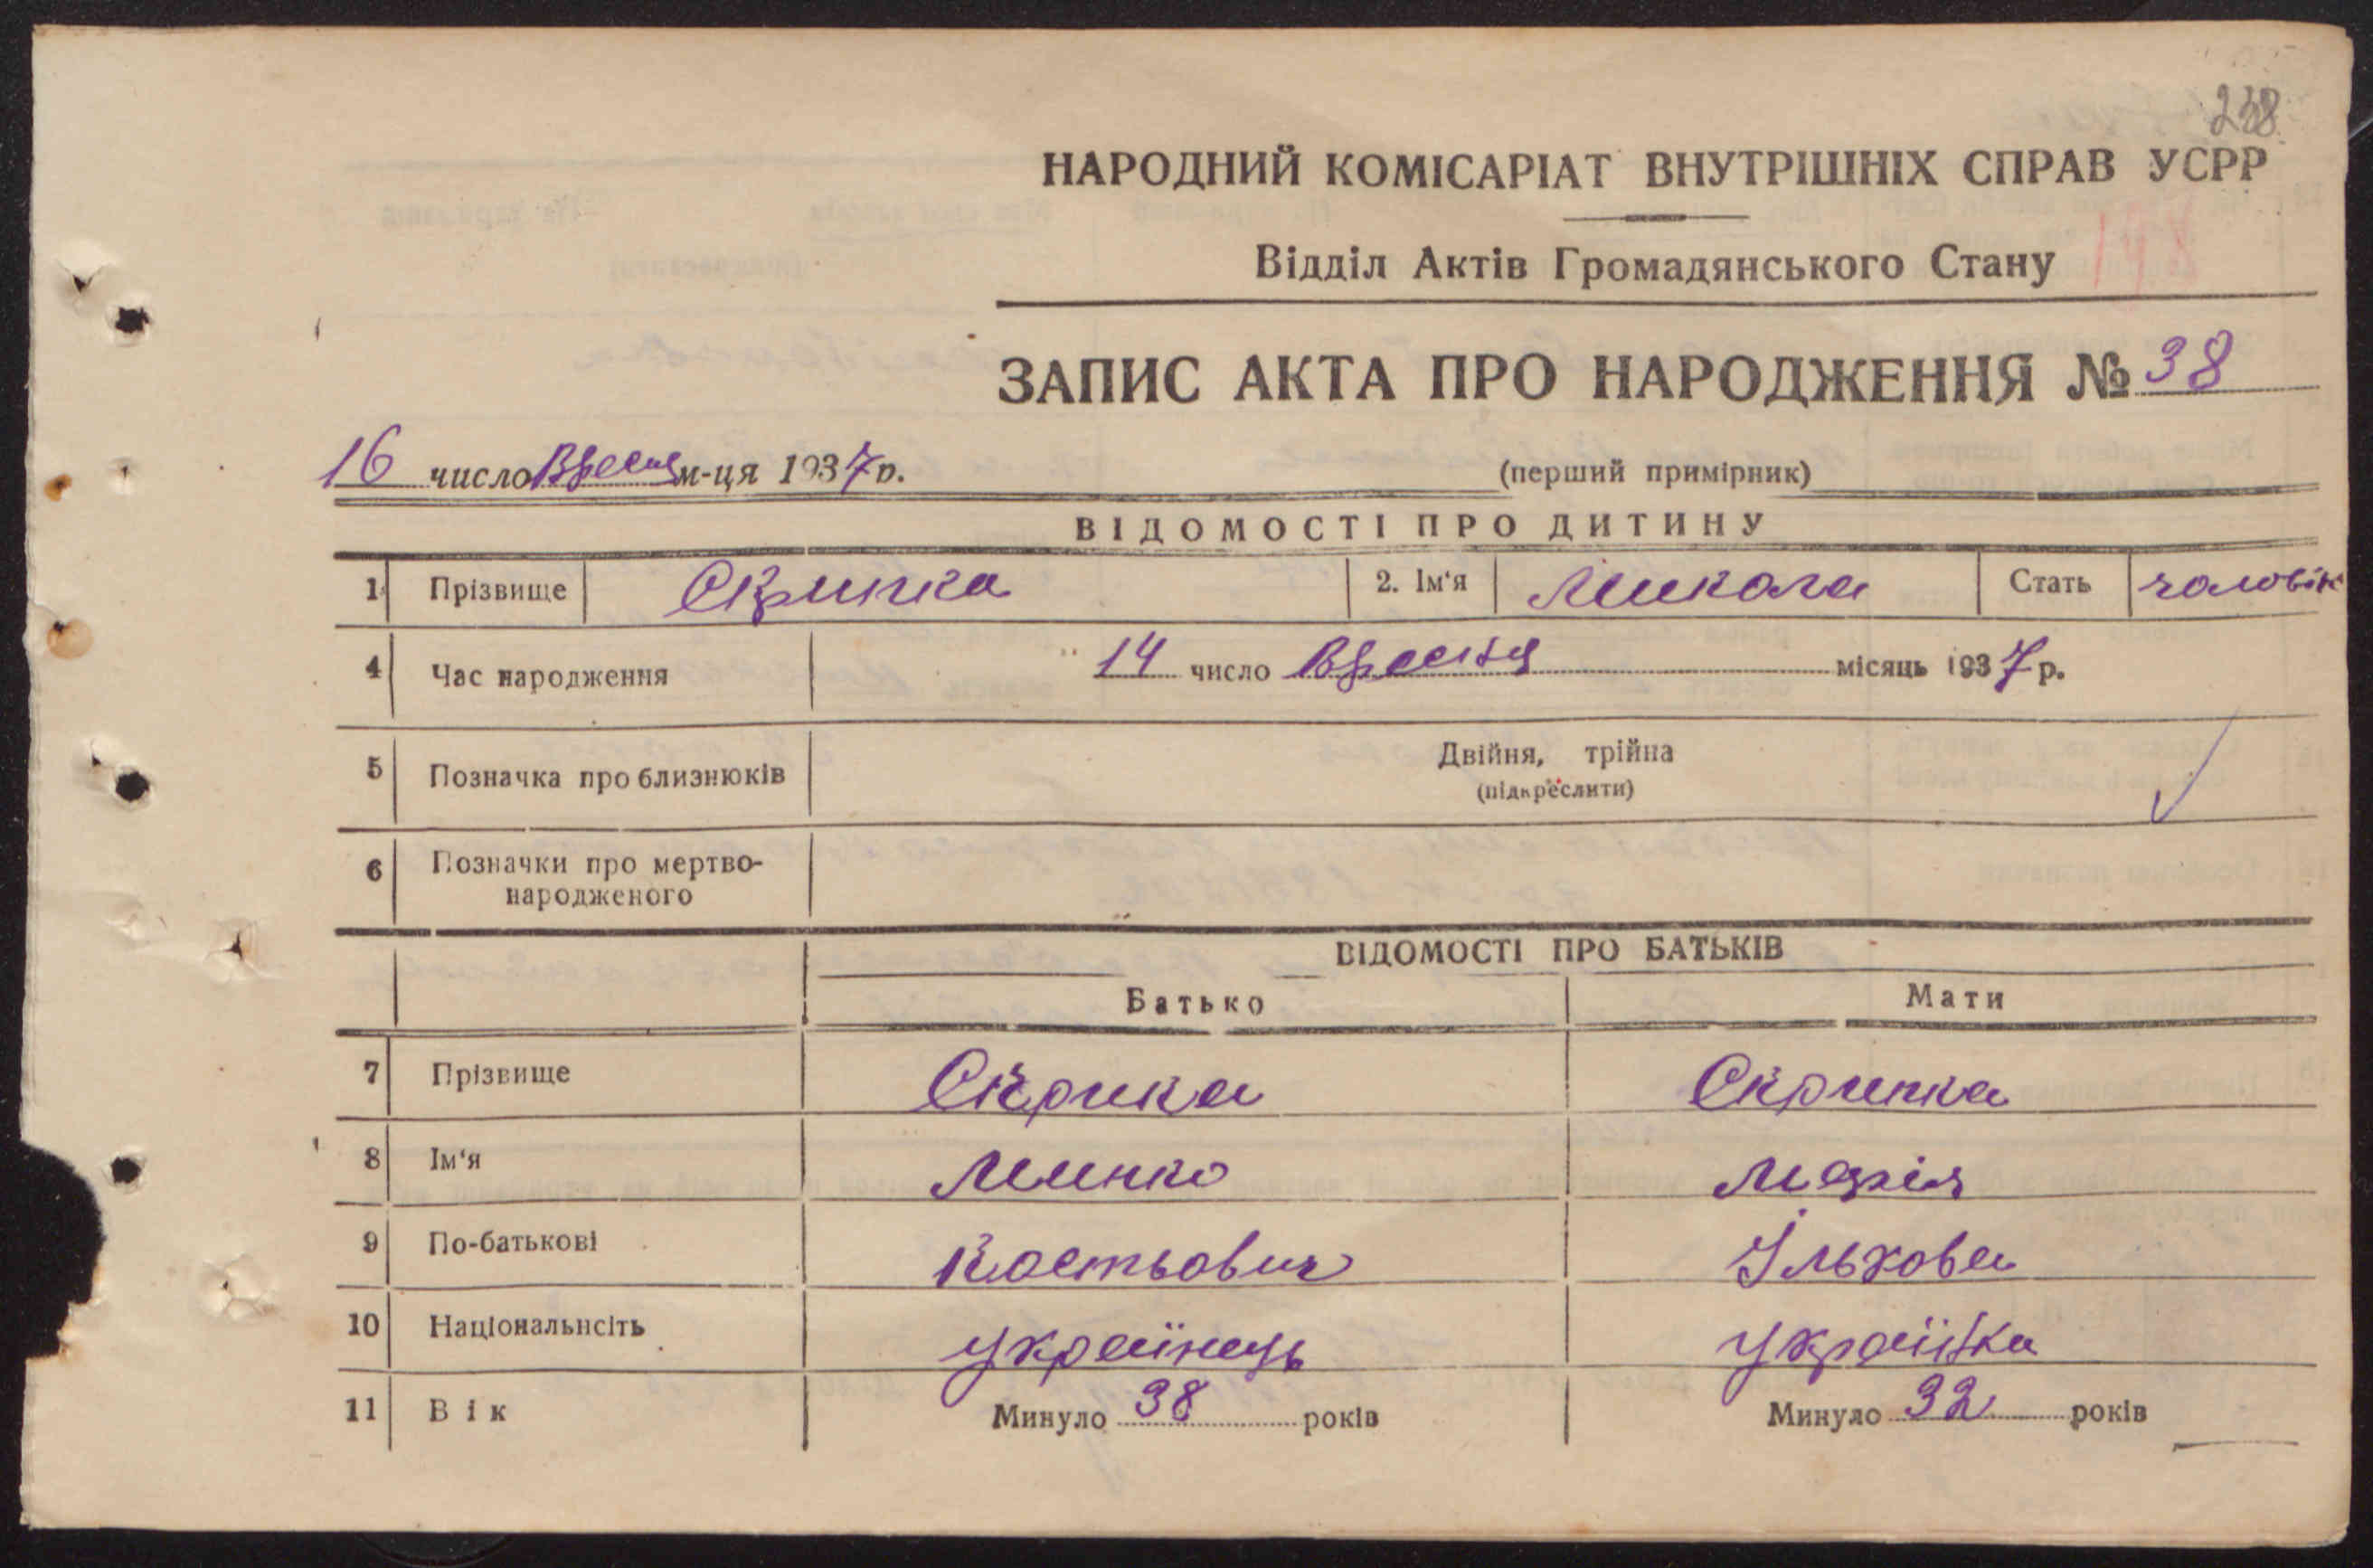 238
НАРОДНИЙ КОМІСАРІАТ ВНУТРІШНІХ СПРАВ УСРР
Відділ Актів Громадянського Стану
ЗАПИС АКТА ПРО НАРОДЖЕННЯ № 38
16 число Вресня м-ця 1937 р.
(перший примірник)
ВІДОМОСТІ ПРО ДИТИНУ
1 Прізвище Скрипка 2. Ім'я Микола Стать чоловік
4 Час народження 14 число Вресня місяць 1937 р.
5 Позначка про близнюків Двійня, трійна
(підкреслити)
6 Позначки про мертво-
народженого
ВІДОМОСТІ ПРО БАТЬКІВ
Батько Мати
7 Прізвище Скрипка Скрипка
8 Ім'я Минко Марія
9 По-батькові Костьович Ількова
10 Національнсіть українець українка
11 Вік Минуло 38 років Минуло 32 років